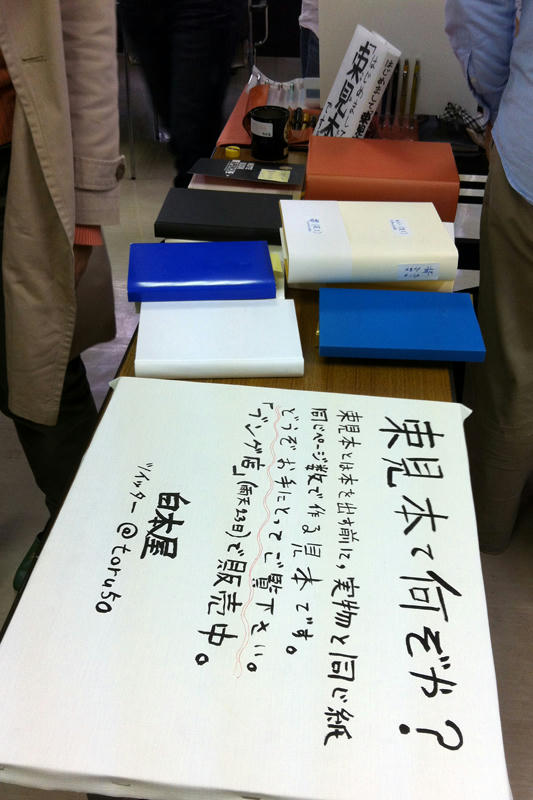 束見本て何ぞや？
束見本とは本を出す前に，実物と同じ紙
同じページ数で作る見本です。
どうぞお手にとってご覧下さい。
「ブング店」で販売中。
白本屋
ツイッター@toru50
束見本